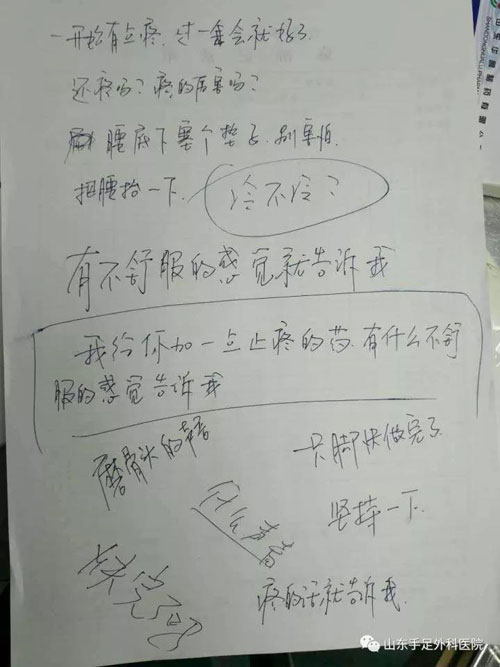 一开始有点疼,过一会会就好了.
还疼吗?疼的厉害吗?
腰底下塞个垫子,别害怕.
把腰抬一下.
冷不冷?
有不舒服的感觉就告诉我
我给你加一点止疼的药.有什么不舒
服的感觉告诉我
磨骨头的声音
只脚快做完了
什么声音
坚持一下.
快完了
疼的话就告诉我.
山东手足外科医院